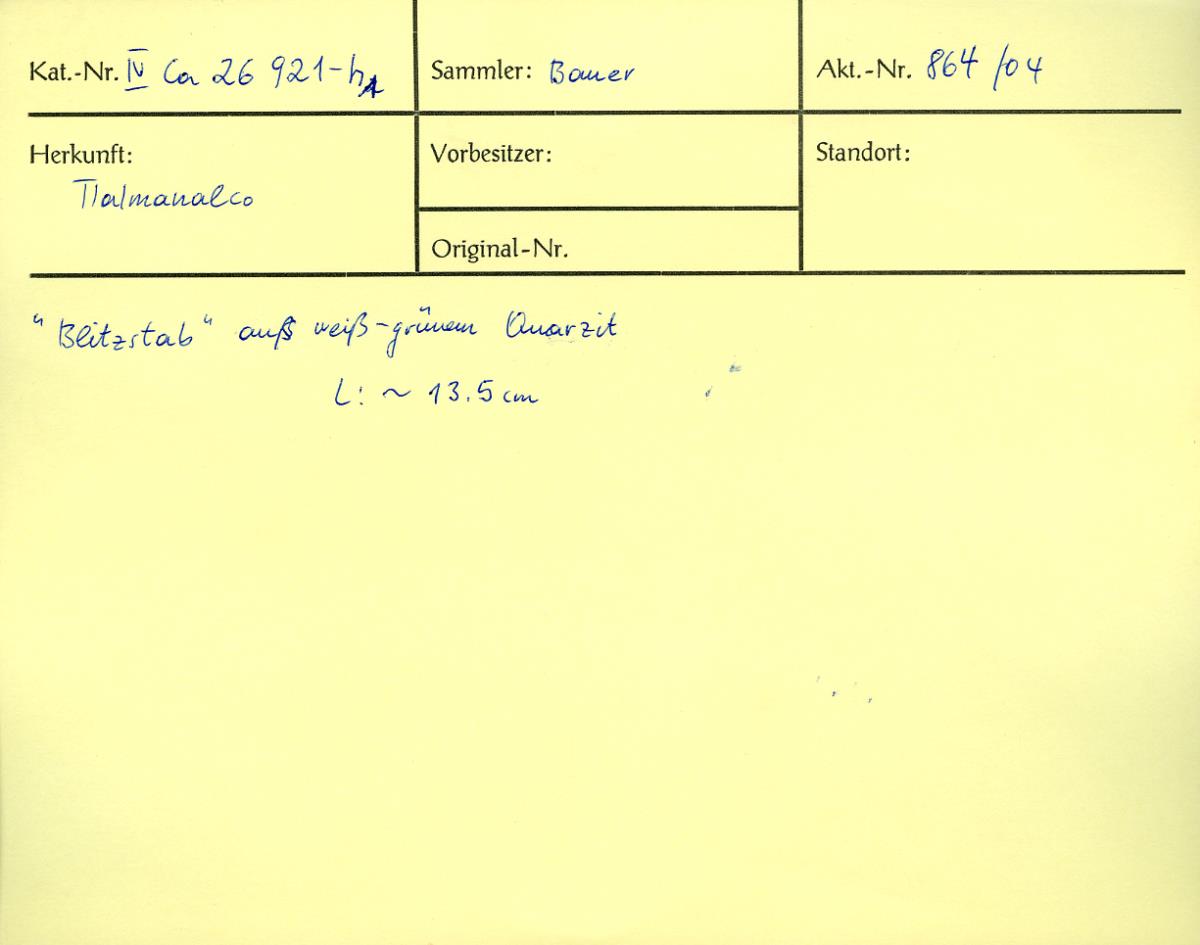 Kat.-Nr. IV Ca 26 921-h1
Sammler: Bauer
Akt.-Nr. 864/04
Herkunft:
Tlalmanalco
Vorbesitzer:
Original-Nr.
Standort:
"Blitzstab" auß weiß-grünem Quarzit
L: ~ 13.5 cm